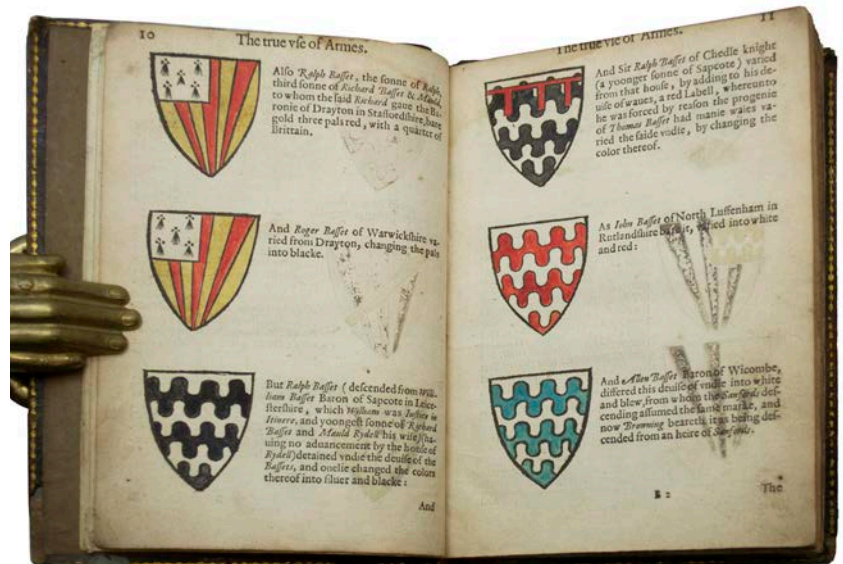 10
The true vſe of Armes.
Alſo Ralph Baſſet, the ſonne of Ralph,
third ſonne of Richard Baſſet & Mauld,
to whom the ſaid Richard gaue the Ba-
ronie of Drayton in Staffordſhire, bare
gold three pals red, with a quarter of
Brittain.
And Roger Baſſet of Warwickſhire va-
ried from Drayton, changing the pals
into blacke.
But Ralph Baſſet (deſcended from Wil-
liam Baſſet Baron of Sapcote in Leice-
ſterſhire, which William was Iuſtice in
Itinere, and yoongeſt ſonne of Richard
Baſſet and Mauld Rydell his wife) (ha-
uing no aduancement by the houſe of
Rydell) detained vndie the deuiſe of the
Baſſets, and onelie changed the colors
thereof into ſiluer and blacke:
And
11
The true vſe of Armes.
And Sir Ralph Baſſet of Chedle knight
(a yoonger ſonne of Sapcote) varied
from that houſe, by adding to his de-
uiſe of waues, a red Labell, whereunto
he was forced by reaſon the progenie
of Thomas Baſſet had manie waies va-
ried the ſaide vndie, by changing the
color thereof.
As Iohn Baſſet of North Luffenham in
Rutlandſhire bare it, varied into white
and red:
And Allen Baſſet Baron of Wicombe,
differed this deuiſe of vndie into white
and blew, from whom the Sanfords deſ-
cending aſſumed the ſame marke, and
now Browning beareth it as being deſ-
cended from an heire of Sanfords.
B 2
The